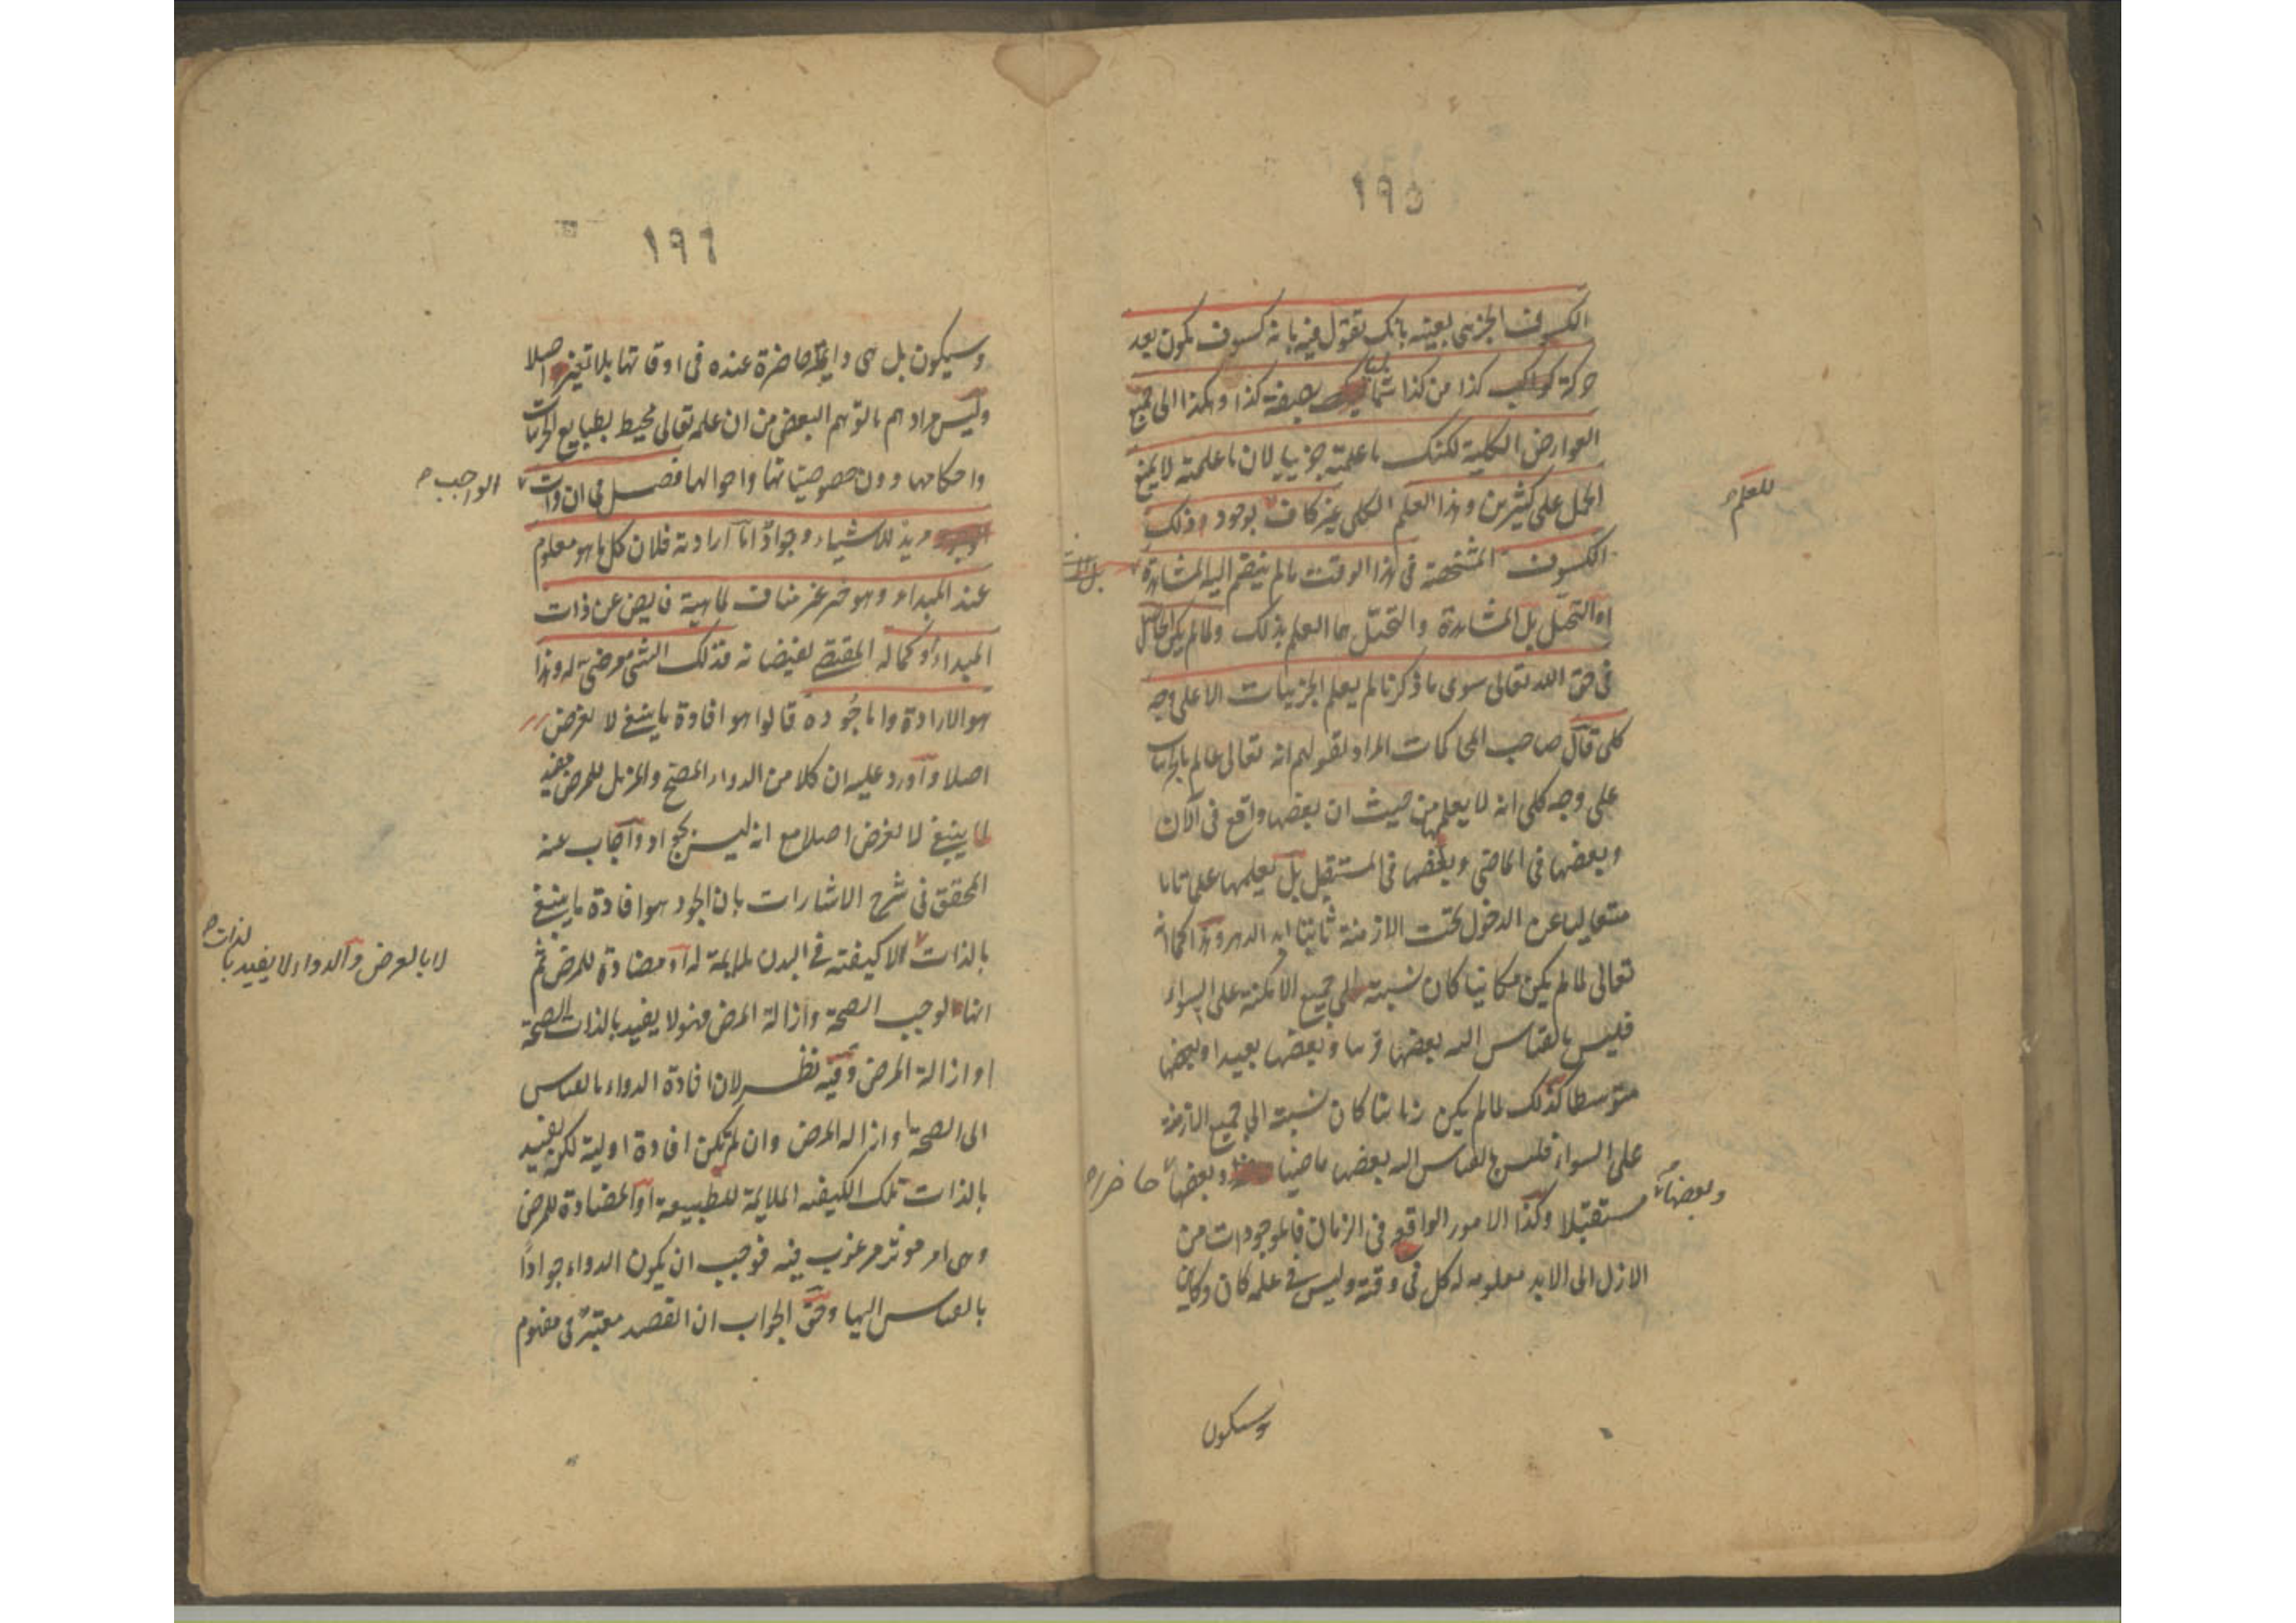 ١٩٥
الكسوف الجزئى بعينه بانك تقول فيه بانه كسوف يكون بعد
حركة كواكب كذا من كذا شماليا بصفة كذا وهكذا الى جميع
العوارض الكلية لكنك ما علمته جزئيا لان ما علمته لا يمنع
الحمل على كثيرين وهذا العلم الكلى غير كاف بوجود ذلك
للعلم
الكسوف المشخصة فى هذا الوقت ما لم ينضم اليه المشاهدة
او التخيل بل المشاهدة والتخيل هما العلم بذلك ولما لم يكن الحاصل
فى حق الله تعالى سوى ما ذكرنا لم يعلم الجزئيات الا على وجه
كلى قال صاحب المحاكمات المراد بقولهم انه تعالى عالم بالجزئيات
على وجه كلى انه لا يعلمها من حيث ان بعضها واقع فى الآن
وبعضها فى الماضى وبعضها فى المستقبل بل يعلمها علما تاما
متعاليا عن الدخول تحت الازمنة ثابتا ابد الدهر وهذا كما انه
تعالى لما لم يكن مكانيا كان نسبته الى جميع الامكنة على السواء
فليس بالقياس اليه بعضها قريبا وبعضها بعيدا وبعضها
متوسطا كذلك لما لم يكن زمانيا كان نسبته الى جميع الازمنة
على السواء فليس بالقياس اليه بعضها ماضيا وبعضها حاضرا
وبعضها مستقبلا وكذا الامور الواقع فى الزمان فالموجودات من
الازل الى الابد معلومه له كل فى وقته وليس فى علمه كان وكاين
وسيكون
١٩٦
وسيكون بل هى دايما حاضرة عنده فى اوقاتها بلا تغير اصلا
وليس مرادهم ما توهم البعض من ان علمه تعالى محيط بطبايع الجزئيات
واحكامها دون خصوصياتها واحوالها فصل فى ان ذات
الواجب
مريد للاشياء وجواد اما ارادته فلان كل ما هو معلوم
عند المبداء وهو خير غير مناف لماهية فايض عن ذات
المبداء وكماله المقتضى لفيضانه فذلك الشئ مرضى له وهذا
هو الارادة واما جوده قالوا هو افادة ما ينبغى لا لغرض
اصلا واورد عليه ان كلا من الدواء المصحح والمزيل للمرض مفيد
لما ينبغى لا لغرض اصلا مع انه ليس بجواد واجاب عنه
المحقق فى شرح الاشارات بان الجود هو افادة ما ينبغى
بالذات الا كيفيته فى البدن ملايمة له او مضادة للمرض ثم
لا بالعرض والدواء لا يفيد بالذات
انها توجب الصحة وازالة المرض فهو لا يفيد بالذات الصحة
او ازالة المرض وفيه نظر لان افادة الدواء بالقياس
الى الصحة وازاله المرض وان لم تكن افادة اولية لكن يفيد
بالذات تلك الكيفيه الملايمة للطبيعة او المضادة للمرض
وهى امر موثر مرغوب فيه فوجب ان يكون الدواء جوادا
بالقياس اليها وحق الجواب ان القصد معتبر فى مفهوم